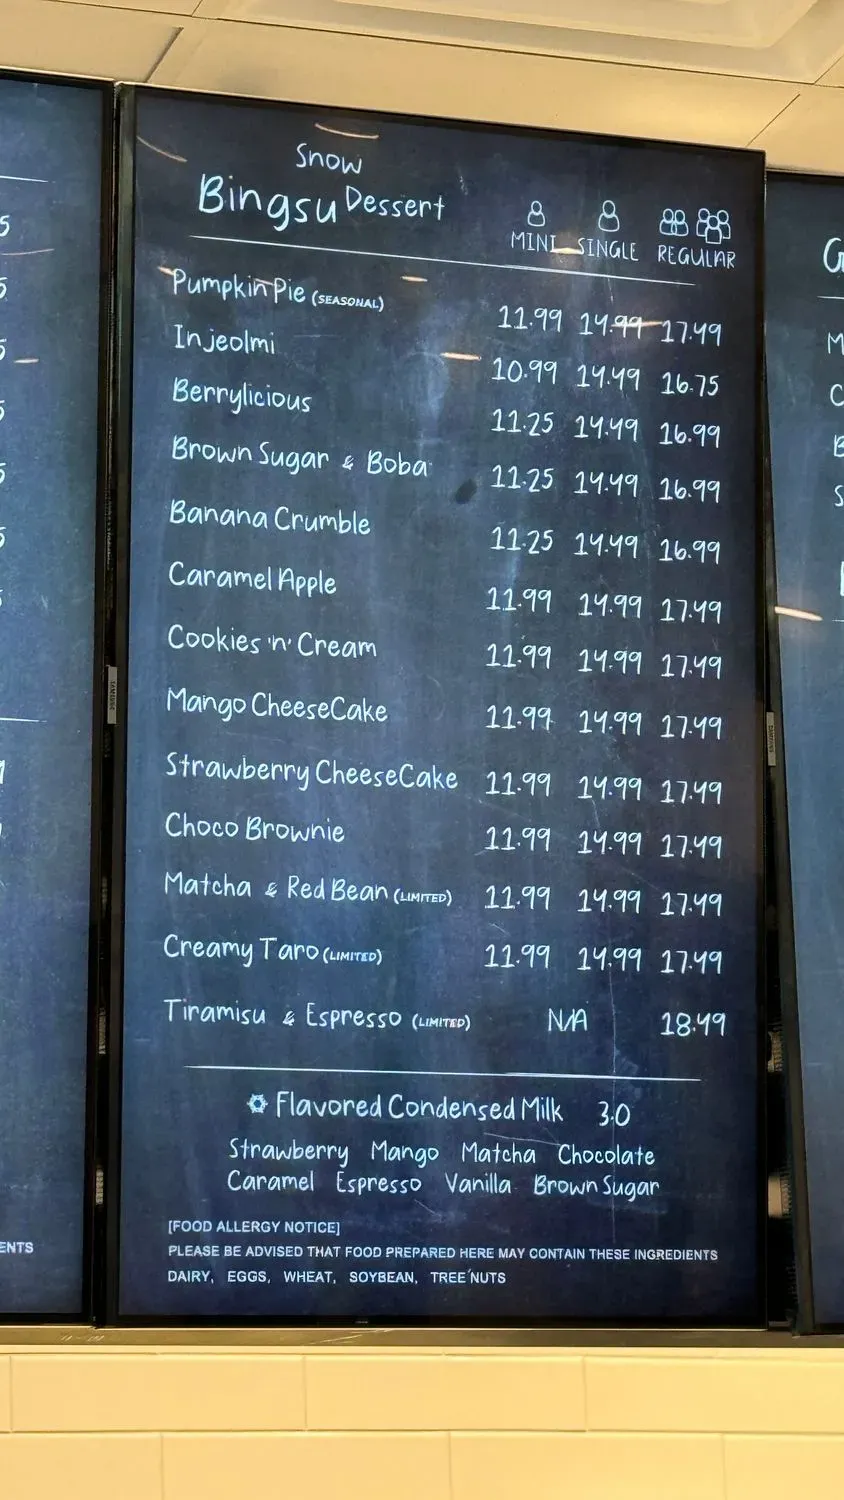 Snow
Bingsu Dessert
MINI SINGLE REGULAR
Pumpkin Pie (SEASONAL) 11.99 14.99 17.49
Injeolmi 10.99 14.49 16.75
Berrylicious 11.25 14.49 16.99
Brown Sugar & Boba 11.25 14.49 16.99
Banana Crumble 11.25 14.49 16.99
Caramel Apple 11.99 14.99 17.49
Cookies 'n' Cream 11.99 14.99 17.49
Mango CheeseCake 11.99 14.99 17.49
Strawberry CheeseCake 11.99 14.99 17.49
Choco Brownie 11.99 14.99 17.49
Matcha & Red Bean (LIMITED) 11.99 14.99 17.49
Creamy Taro (LIMITED) 11.99 14.99 17.49
Tiramisu & Espresso (LIMITED) N/A 18.49
Flavored Condensed Milk 3.0
Strawberry Mango Matcha Chocolate
Caramel Espresso Vanilla Brown Sugar
[FOOD ALLERGY NOTICE]
PLEASE BE ADVISED THAT FOOD PREPARED HERE MAY CONTAIN THESE INGREDIENTS
DAIRY, EGGS, WHEAT, SOYBEAN, TREE NUTS
SAMSUNG